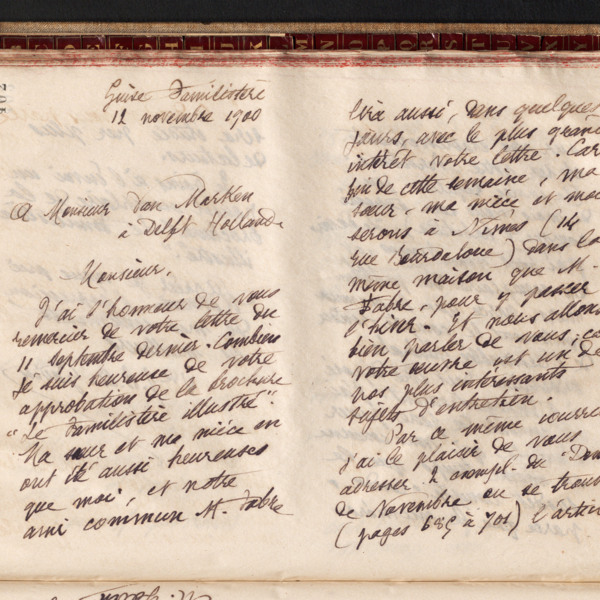 402
Guise Familistère
12 novembre 1900
A Monsieur Van Marken
à Delft Hollande
Monsieur,
J'ai l'honneur de vous
remercier de votre lettre du
11 septembre dernier. Combien
je suis heureuse de votre
approbation de la brochure
"Le Familistère illustré".
Ma sœur et ma nièce en
ont été aussi heureuses
que moi, et notre
ami commun M. Fabre
lira aussi, dans quelques
jours, avec le plus grand
intérêt votre lettre. Car
fin de cette semaine, ma
sœur, ma nièce et moi
serons à Nîmes (14
rue Bourdaloue) dans la
même maison que M.
Fabre, pour y passer
l'hiver. Et nous allons
bien parler de vous, 
votre œuvre est un de
nos plus intéressants
sujets d'entretien.
Par ce même courrier
j'ai le plaisir de vous
adresser 2 exempl. du
de Novembre où se trouve
(pages 685 à 701) l'artic